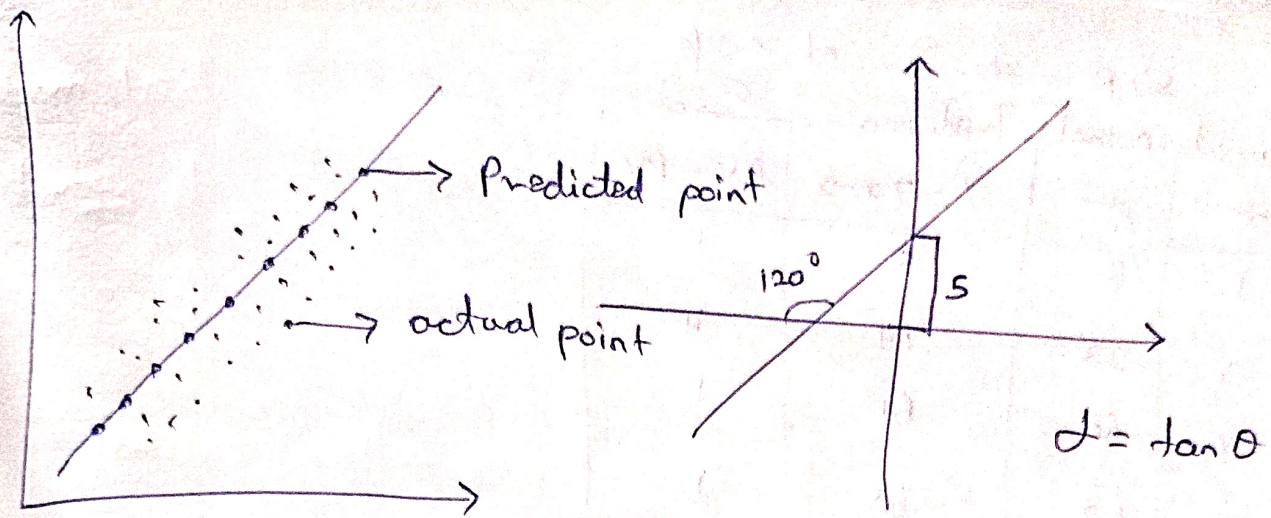 Predicted point
actual point
120°
5
α = tan θ